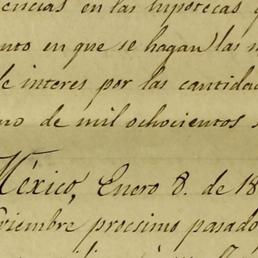 encias en las hipotecas q
nto en que se hagan las
e interes por las cantidad
no de mil ochocientos s
México, Enero 8. de 18
viembre procsimo pasado